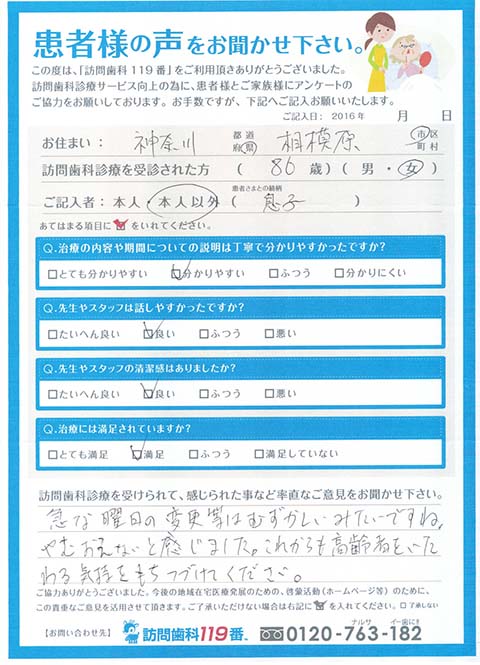 患者様の声をお聞かせ下さい。
この度は、「訪問歯科119番」をご利用頂きありがとうございました。
訪問歯科診療サービス向上の為に、患者様とご家族様にアンケートの
ご協力をお願いしております。お手数ですが、下記へご記入お願いします。
ご記入日：2016年　　月　　日
お住まい：神奈川 都道府県 相模原 市区町村
訪問歯科診療を受診された方（ 86 歳）（ 男・女 ）
ご記入者：本人・本人以外（ 患者さまとの続柄 息子 ）
あてはまる項目に☑をいれてください。
Q.治療の内容や期間についての説明は丁寧で分かりやすかったですか？
□とても分かりやすい ☑分かりやすい □ふつう □分かりにくい
Q.先生やスタッフは話しやすかったですか？
□たいへん良い ☑良い □ふつう □悪い
Q.先生やスタッフの清潔感はありましたか？
□たいへん良い ☑良い □ふつう □悪い
Q.治療には満足されていますか？
□とても満足 ☑満足 □ふつう □満足していない
訪問歯科診療を受けられて、感じられた事など率直なご意見をお聞かせ下さい。
急な曜日の変更等はむずかしいみたいですね。
やむおえないと感じました。これからも高齢者をいた
わる気持をもちつづけてください。
ご協力ありがとうございました。今後の地域在宅医療発展のための、啓蒙活動（ホームページ等）のために、
この貴重なご意見を活用させて頂きます。ご了承いただけない場合は右記に☑を入れてください。□了承しない
【お問い合わせ先】 訪問歯科119番 ナルサ イー歯に！ 0120-763-182